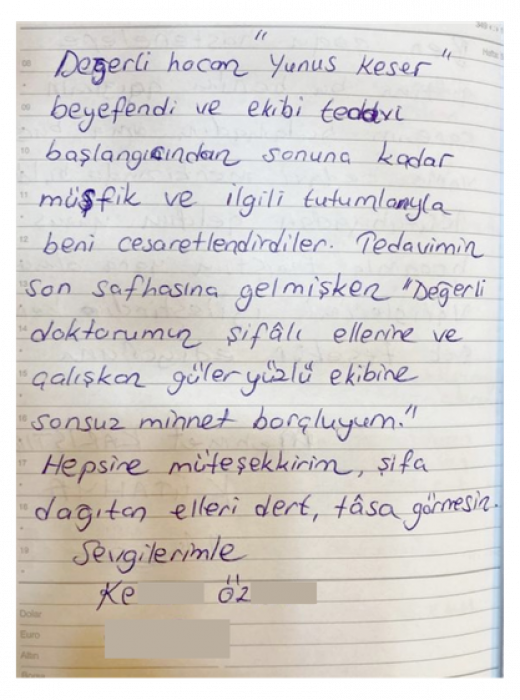 "
Değerli hocam Yunus Keser"
beyefendi ve ekibi tedavi
başlangıcından sonuna kadar
müşfik ve ilgili tutumlarıyla
beni cesaretlendirdiler. Tedavimin
son safhasına gelmişken "Değerli
doktorumun şifâlı ellerine ve
çalışkan güler yüzlü ekibine
sonsuz minnet borçluyum."
Hepsine müteşekkirim, şifa
dağıtan elleri dert, tâsa görmesin.
Sevgilerimle
Ke Öz
08
09
10
11
12
13
14
15
16
17
18
19
Dolar
Euro
Altın